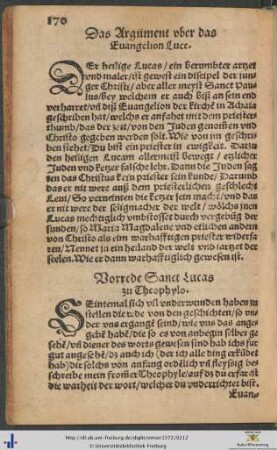 170
Das Argument vber das
Euangelion Luce.
DEr heilige Lucas / ein berümbter artzet
vnd maler / ist gewest ein discipel der iun-
ger Christi / aber aller meyst Sanct Pau-
lus / bey welchem er auch biß an sein end
verharret / vñ diß Euangelion der kirchē in Achaia
geschriben hat / welchs er anfahet mit dem priester
thumb / das der zeit / von den Juden genommen vnd
Christo gegeben werden solt. Wie von im geschri-
ben stehet / Du bist ein priester in ewigkeit. Dartzu
den heiligen Lucam allermeist bewegt / etzlicher
Juden vnd Ketzer falsche lehr. Dann die Juden sag
ten das Christus kein priester sein kunde / Darumb
das er nit were auß dem priesterlichen geschlecht
Leui / So verneinten die Ketzer sein macht / vnd das
er nit were der seligmacher der welt / wölchs nun
Lucas mechtiglich vmbstosset durch vergebūg der
sunden / so Maria Magdalene vnd etlichen andern
von Christo als ein warhafftigen priester widerfa
ren / Nennet in ein heiland der welt vnd artzet der
seelen. Wie er dann warhafftiglich gewesen ist.
Vorrede Sanct Lucas
zu Theophylo.
SEintemal sich vil vnderwunden haben zu
stellen die rede von den geschichten / so vn
der vns ergangē seind / wie vns das ange-
gebē habē / die so es von anbegin selber ge
sehē / vñ diener des worts gewesen sind hab ichs fur
gut angesehē / dz auch ich (der ich alle ding erkündet
hab) dir solchs von anfang ordēlich vñ fleyssig be-
schreibe mein from̄er Theophyle / auff dz du erfarst
die warheit der wort / welcher du vnderrichtet bist.
Euan-
http://dl.ub.uni-freiburg.de/diglit/emser1572/0212
© Universitätsbibliothek Freiburg